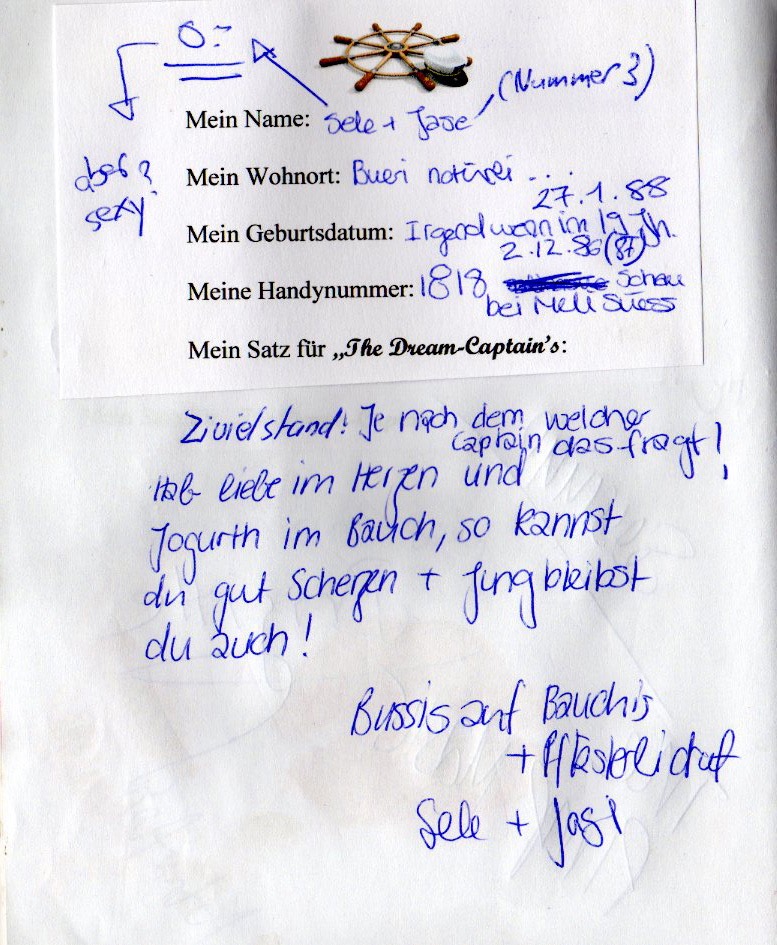 O:-
(Nummer 3)
Mein Name: Sele + Jase
aber
sexy
Mein Wohnort: Bueri natürei ...
27.1.88
Mein Geburtsdatum: Irgendwann im 19 Jh.
2.12.86 (87)
Meine Handynummer: 1818 Schau
bei Meli Süess
Mein Satz für „The Dream-Captain's:
Zivielstand: Je nach dem welcher
Captain das fragt!
Hab liebe im Herzen und
Jogurth im Bauch, so kannst
du gut Scherzen + Jung bleibst
du auch!
Bussis auf Bauchis
+ Pflästerli druf
Sele + Jasi